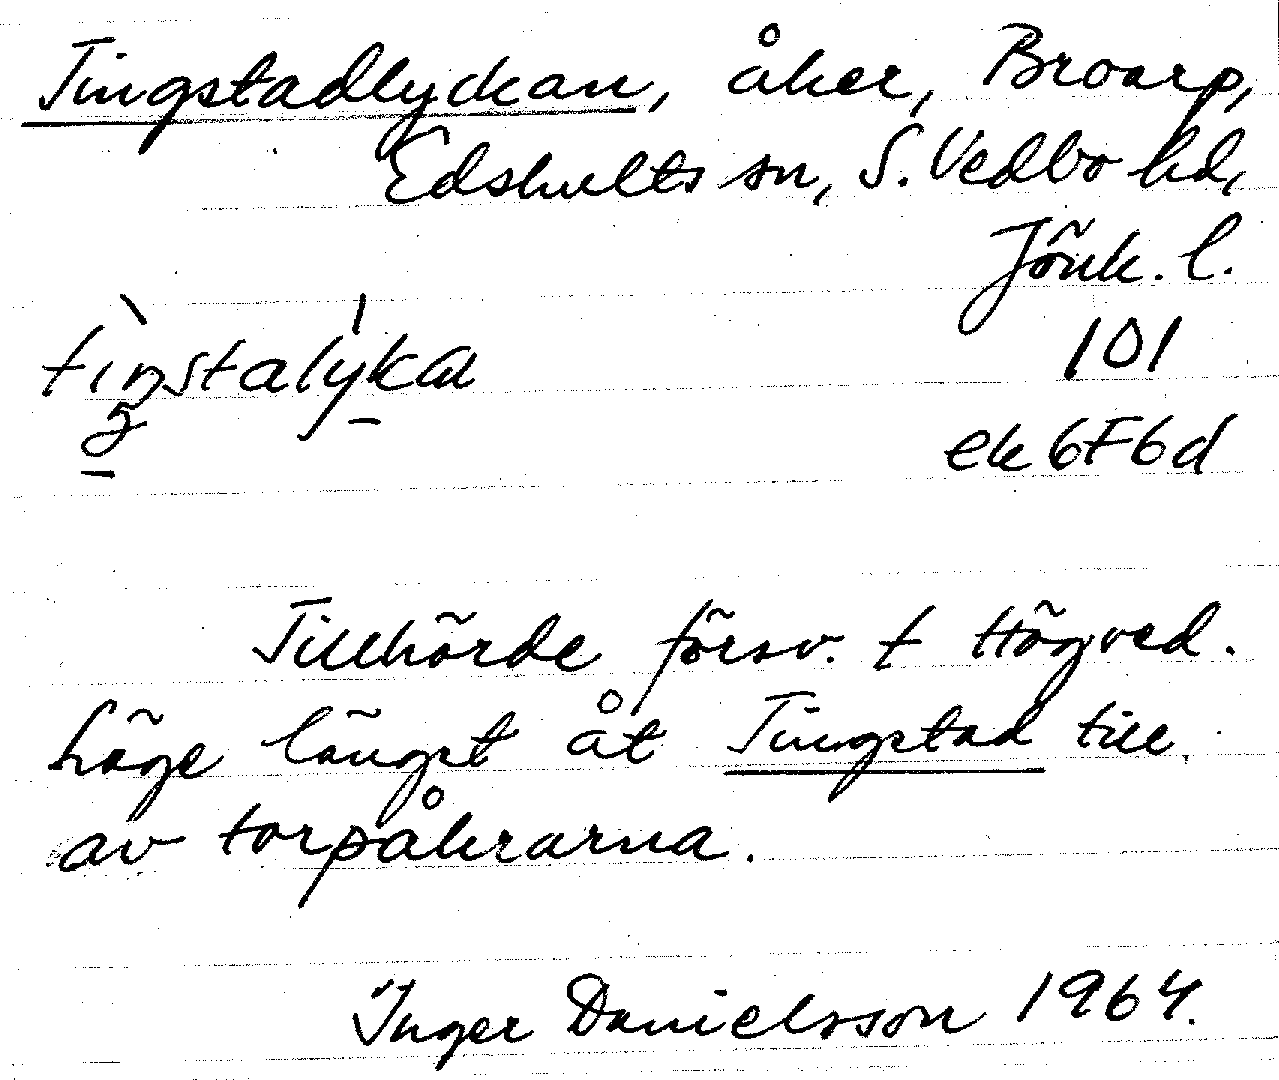 Tingstadlyckan, åker, Broarp,
Edshults sn, S. Vedbo hd,
Jönk. l.
tìŋstalýka 101
ek 6F6d
Tillhörde försv. t Högved.
Låge längst åt Tingstad till
av torpåkrarna.
Inger Danielsson 1964.